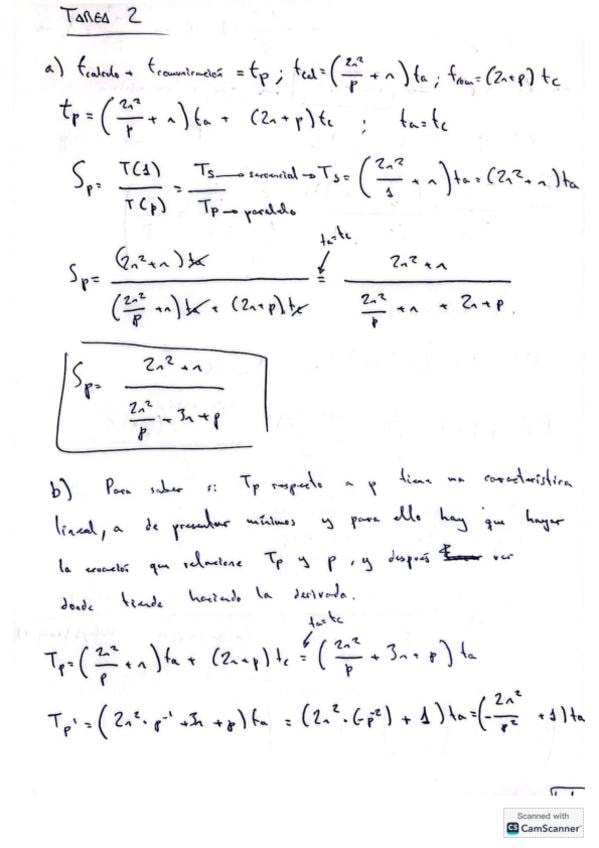 TAREA 2
a) tcalculo + tcomunicación = tp ; tcal = (2n²/p + n) ta ; tcom = (2n+p) tc
tp = (2n²/p + n) ta + (2n+p) tc ; ta = tc
Sp = T(1)/T(p) = Ts → secuencial / Tp → paralelo → Ts = (2n²/1 + n) ta = (2n²+n) ta
ta=tc
Sp = (2n²+n) ta / ((2n²/p + n) ta + (2n+p) tc) = 2n²+n / (2n²/p + n + 2n+p)
Sp = 2n²+n / (2n²/p + 3n + p)
b) Para saber si Tp respecto a p tiene una característica
lineal, a de presentar mínimos y para ello hay que hayar
la ecuación que relacione Tp y p, y después ver
donde tiende haciendo la derivada.
ta=tc
Tp = (2n²/p + n) ta + (2n+p) tc = (2n²/p + 3n + p) ta
Tp' = (2n² · p⁻¹ + 3n + p) ta = (2n² · (-p⁻²) + 1) ta = (-2n²/p² + 1) ta
Scanned with
CS CamScanner